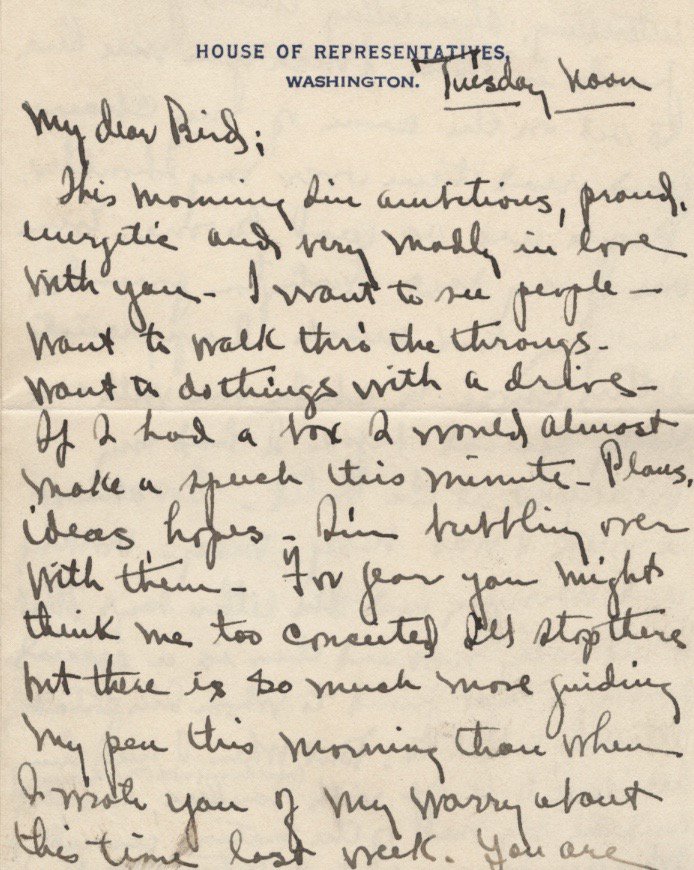 HOUSE OF REPRESENTATIVES,
WASHINGTON.
Tuesday Noon
My dear Bird;
This morning I'm ambitious, proud,
energetic and very madly in love
with you - I want to see people -
want to walk thro the throngs -
want to do things with a drive -
If I had a box I would almost
make a speech this minute - Plans,
ideas, hopes - I'm bubbling over
with them - For fear you might
think me too conceited I'll stop there
but there is so much more guiding
my pen this morning than when
I wrote you of my worry about
this time last week. You are